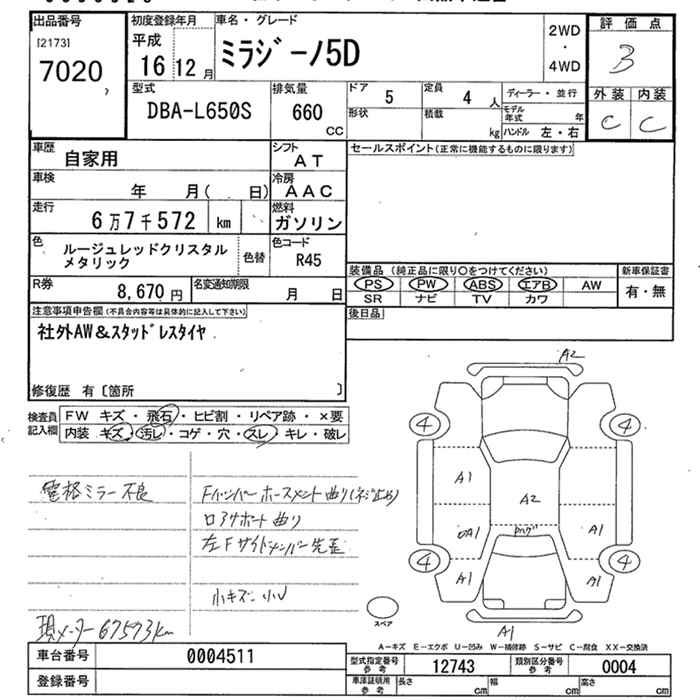 出品番号
[2173]
7020
初度登録年月
平成
16 12 月
車名・グレード
ミラジーノ5D
2WD
・
4WD
評価点
3
外装 内装
C C
型式
DBA-L650S
排気量
660
CC
ドア
5
定員
4 人
ディーラー・並行
形状
積載
kg
モデル年式 年
ハンドル 左・右
車歴
自家用
シフト
AT
セールスポイント(正常に機能するものに限ります)
車検
年 月( 日)
冷房
AAC
走行
6万7千572 km
燃料
ガソリン
色
ルージュレッドクリスタル
メタリック
色替
色コード
R45
装備品(純正品に限り○をつけてください)
PS PW ABS エアB AW
SR ナビ TV カワ
新車保証書
有・無
R券
8,670 円
名変通知期限
月 日
後日品
注意事項申告欄(不具合内容等は具体的に記入して下さい)
社外AW&スタッドレスタイヤ
修復歴 有〔箇所 〕
検査員
記入欄
FW キズ・飛石・ヒビ割・リペア跡・×要
内装 キズ・汚レ・コゲ・穴・スレ・キレ・破レ
電格ミラー不良
Fバンパーホースメント曲り(ネジ止め)
コアサポート曲り
左Fサイドメンバー先歪
小キズ・小U
現メーター67573km
A2
4 4
A1
A2
A1
A1
4 4
A1 A1
A1
スペア
A-キズ E-エクボ U-凹み W-補修跡 S-サビ C-腐食 XX-交換済
車台番号
0004511
登録番号
型式指定番号
参考
12743
類別区分番号
参考
0004
車庫証明用
参考
長さ cm
幅 cm
高さ cm